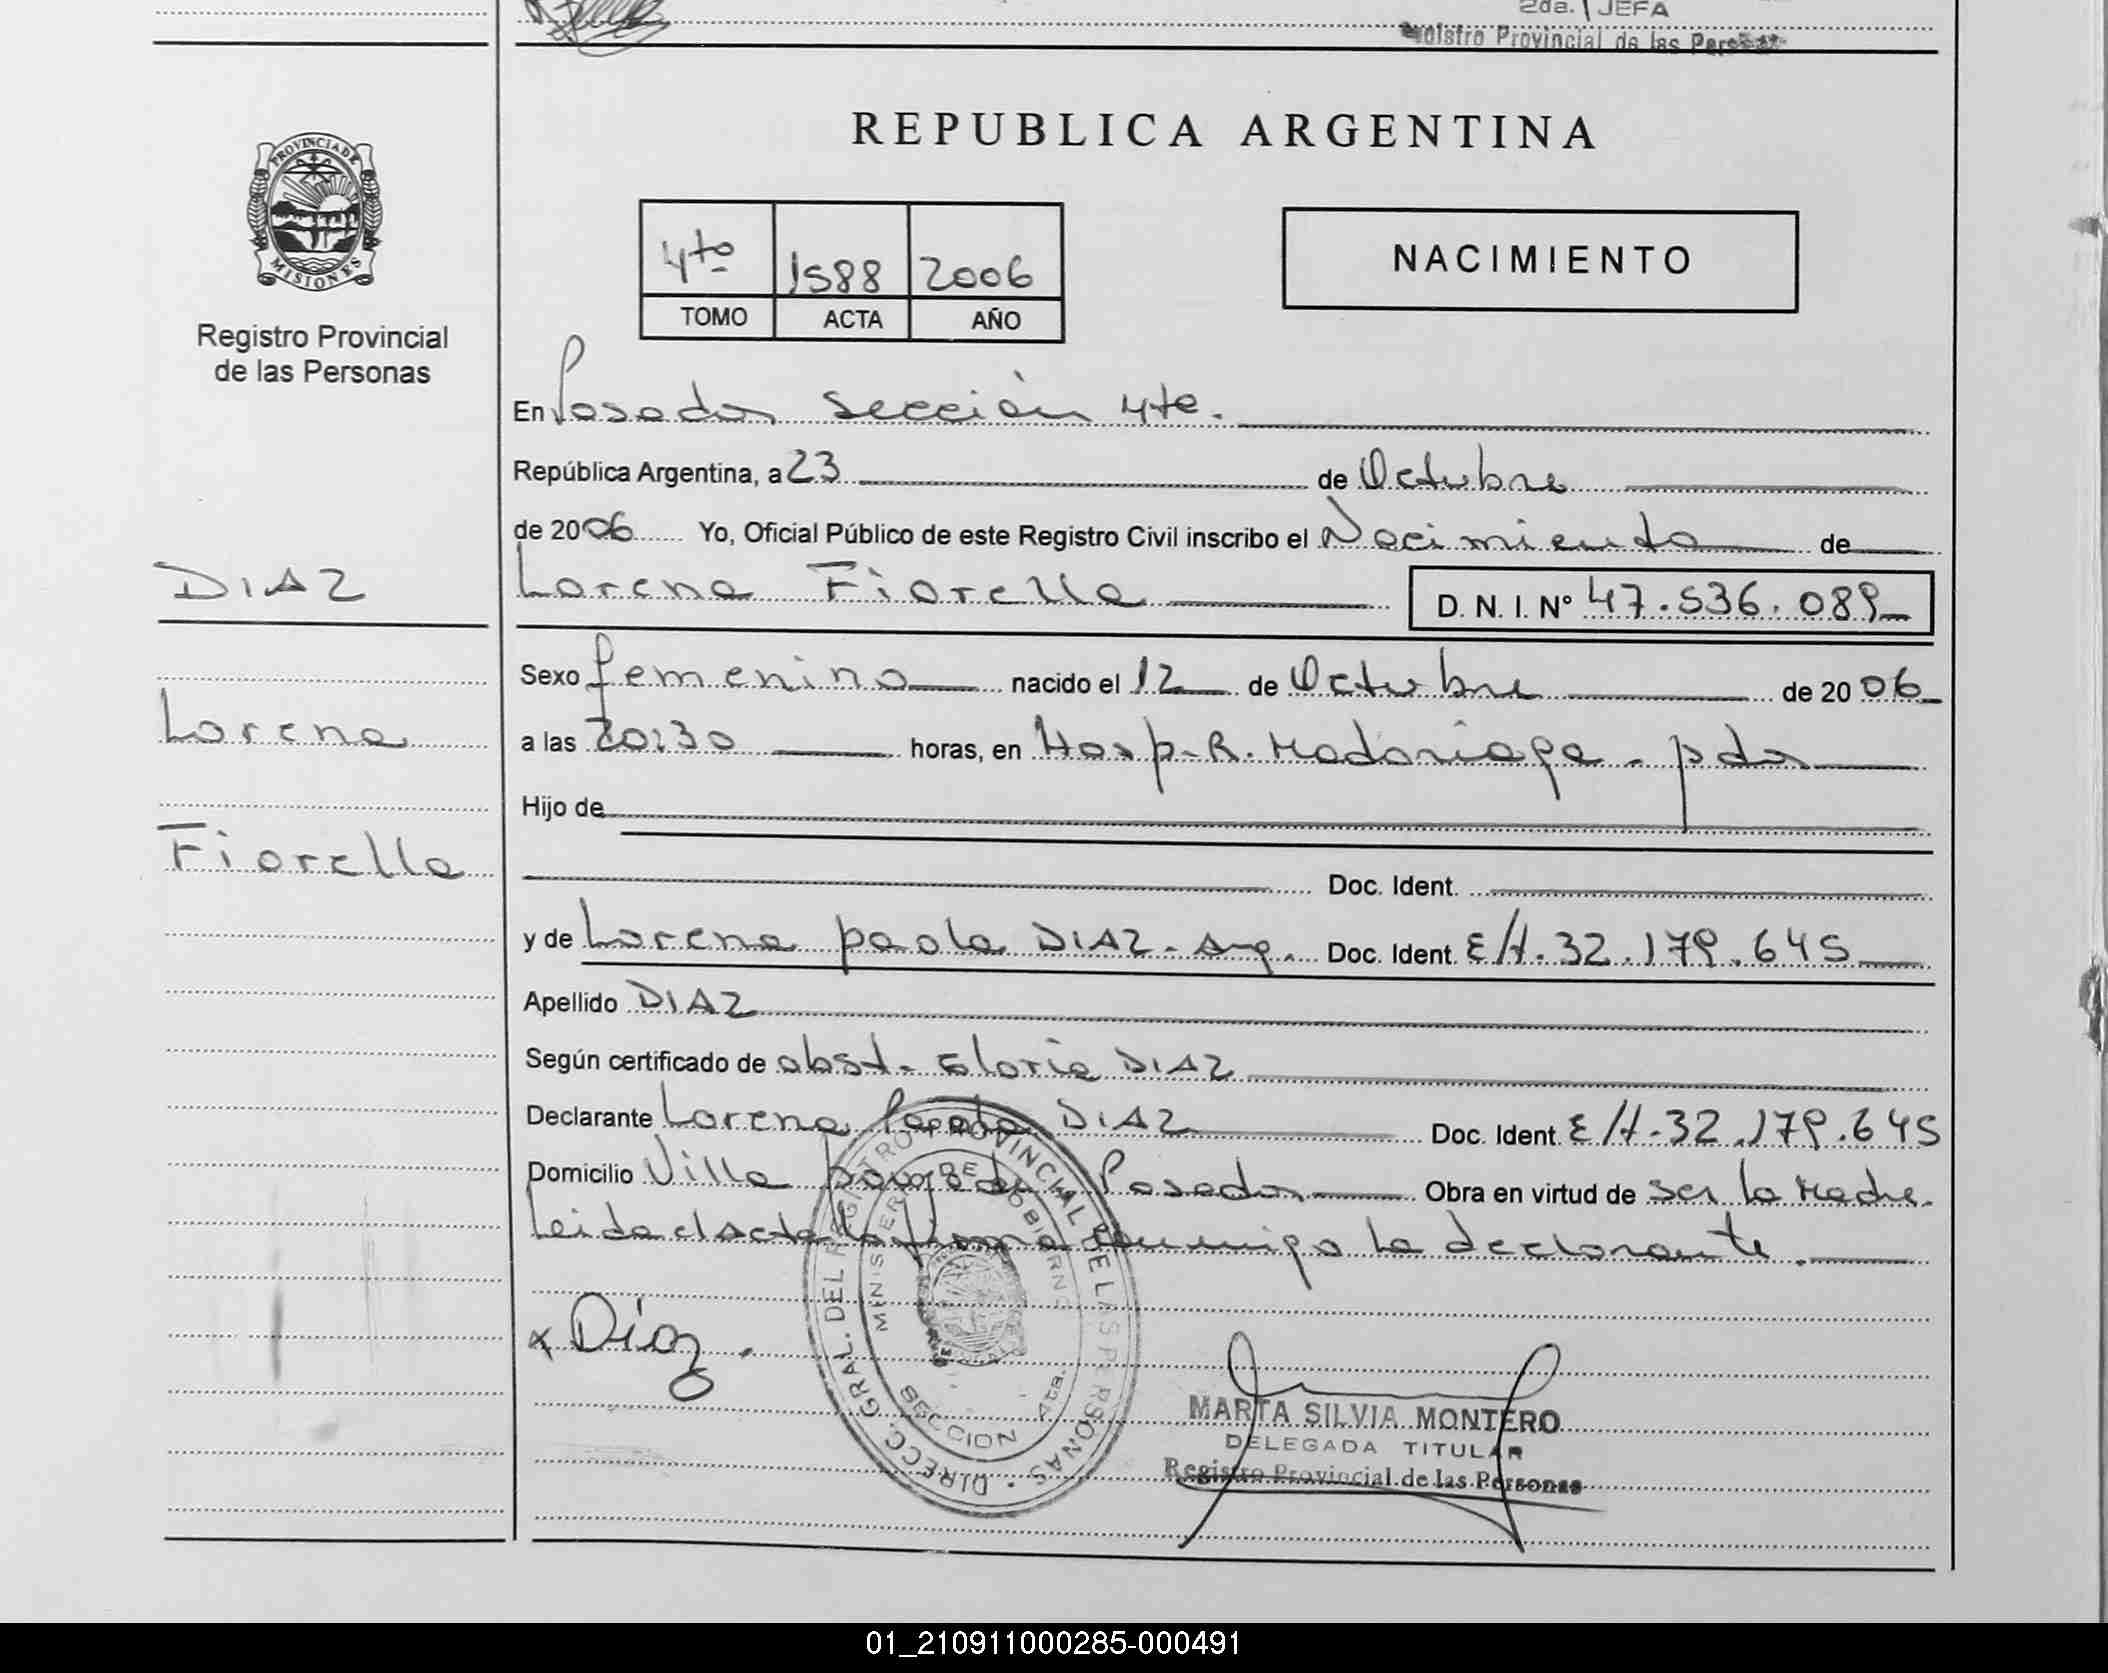 2da. JEFA
Registro Provincial de las Personas
REPUBLICA ARGENTINA
PROVINCIA DE
MISIONES
Registro Provincial
de las Personas
4to 1588 2006
TOMO ACTA AÑO
NACIMIENTO
En Posadas Sección 4ta.
República Argentina, a 23 de Octubre
de 2006 Yo, Oficial Público de este Registro Civil inscribo el Nacimiento de
DIAZ
Lorena Fiorella D. N. I. Nº 47.536.089
Sexo femenino nacido el 12 de Octubre de 2006
Lorena
a las 20:30 horas, en Hosp. R. Madariaga - pdas
Hijo de
Fiorella
Doc. Ident.
y de Lorena paola DIAZ - Arg. Doc. Ident. E/H. 32.179.645
Apellido DIAZ
Según certificado de obst. Gloria DIAZ
Declarante Lorena Paola DIAZ Doc. Ident. E/H. 32.179.645
Domicilio Villa Posadas Obra en virtud de ser la Madre.
Leida el acta la firma conmigo la declarante.
x Díaz.
DIRECC. GRAL. DEL REGISTRO PROVINCIAL DE LAS PERSONAS
MINISTERIO DE GOBIERNO
SECCION 4ta.
MARTA SILVIA MONTERO
DELEGADA TITULAR
Registro Provincial de las Personas
01_210911000285-000491